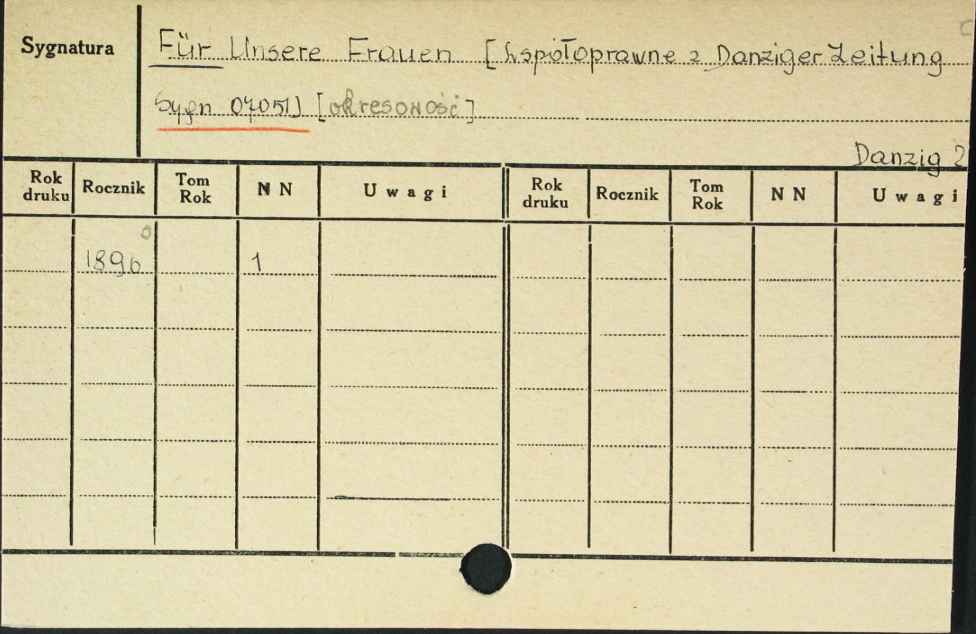 Sygnatura
Für Unsere Frauen [Współoprawne z Danziger Zeitung
Sygn 07051] [okresowość]
Danzig ?
Rok druku Rocznik Tom Rok N N Uwagi Rok druku Rocznik Tom Rok N N Uwagi
1890 1